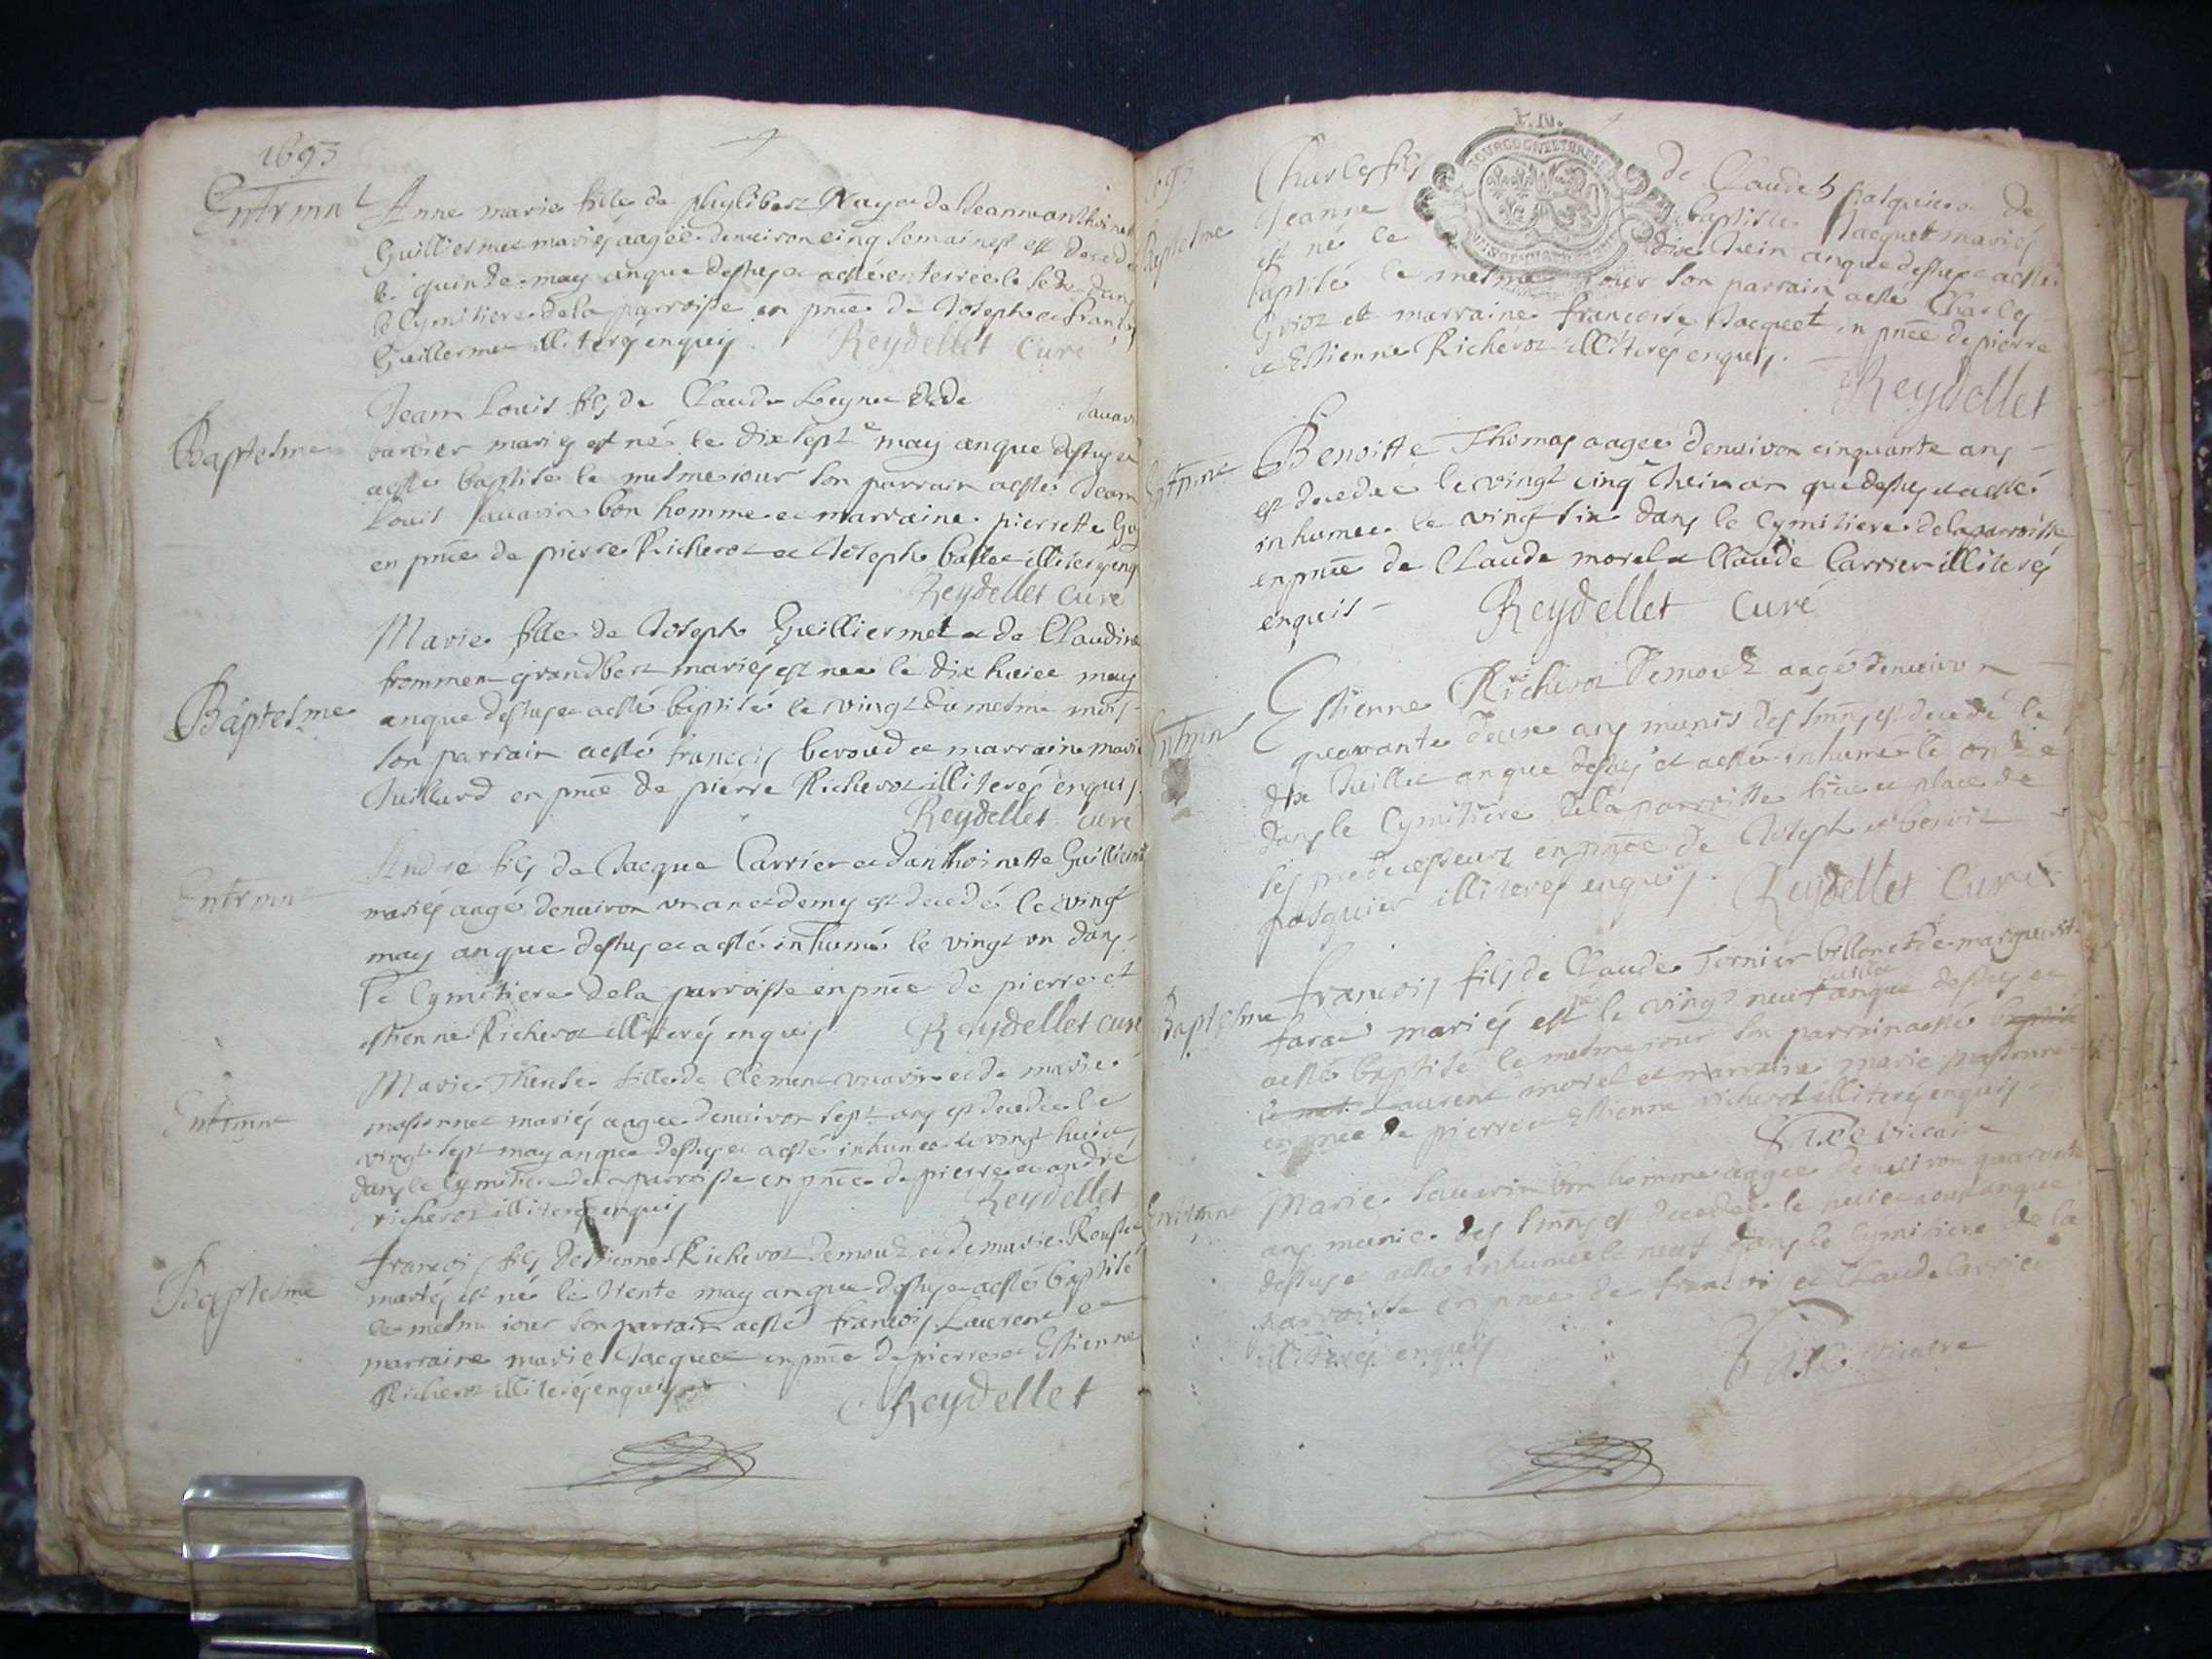 1693
Entrmnt
Anne marie fille de phylibert Ray et de Jeanne anthoine
Guilliermet mariés aagée denuiron cinq semaines est decedée
le quinze may an que dessus et a esté enterrée le seze dans
le Cymitiere de la parroisse en pnce de Joseph et francois
Guillermet illiterés enquis. Reydellet Curé
Baptesme
Jean Louis fils de Claude Leynet et de Sauari
barbier mariés est né le dix sept e may an que dessus et
a esté baptisé le mesme iour son parrain a esté Jean
Louis Sauarin bon homme et marraine pierrette
en pnce de pierre Richerot et Joseph illiteres enq
Reydellet Curé
Baptesme
Marie fille de Joseph Guilliermet et de Claudine
frommen grandbert mariés est née le dix huict may
an que dessus et a esté baptisé le vingt du mesme mois
son parrain a esté francois beroud et marraine marie
Juillard en pnce de pierre Richerot illiterés enquis.
Reydellet curé
Entrmnt
Andre fils de Jacque Carrier et danthoinette Guilliermet
mariés aagé denuiron un an et demy est decedé le vingt
may an que dessus et a esté inhumé le vingt un dans
le Cymitiere de la parroisse en pnce de pierre et
estienne Richerot illiterés enquis. Reydellet curé
Entrmnt
Marie Therese fille de Clement et de marie
massonnet mariés aagée denuiron sept ans est decedée le
vingt sept may an que dessus et a esté inhumée le vingt huict
dans le Cymitiere de la parroisse en pnce de pierre et andre
richerot illiterés enquis Reydellet
Baptesme
francois fils destienne Richerot demouz et de marie
mariés est né le trente may an que dessus et a esté baptisé
le mesme iour son parrain a esté francois Laurent et
marraine marie Jacquet en pnce de pierre et Estienne
Richerot illiterés enquis Reydellet
Baptesme
F.N.
BOURGOGNE ET BRESSE
Charles fils de Claude pasquier et de
Jeanne baptiste Jacquet mariés
est né le dix Juin an que dessus et a esté
baptisé le mesme iour son parrain a esté Charles
Guiot et marraine francoise Jacquet en pnce de pierre
et Estienne Richerot illiterés enquis.
Reydellet
Entrmnt
Benoitte Thomas aagée denuiron cinquante ans
est decedée le vingt cinq Juin an que dessus et a esté
inhumée le vingt six dans le Cymitiere de la parroisse
en pnce de Claude morel et Claude Carrier illiterés
enquis Reydellet Curé
Entrmnt
Estienne Richerot Demouz aagé denuiron
quarante deux ans munis des smns est decedé le
dix Juillet an que dessus et a esté inhumé le onze
dans le Cymitiere de la parroisse lieu et place de
ses predecesseurs en pnce de Joseph et benoit
pasquier illiterés enquis. Reydellet Curé
Baptesme
francois fils de Claude Tornier billon et de marguerite
farat mariés est né le vingt neuf juillet an que dessus et
a esté baptisé le mesme iour son parrain a esté baptisé
Laurent morel et marraine marie
en pnce de pierre et Estienne richerot illiterés enquis
vicaire
Entrmnt
Marie Sauarin bon homme aagée denuiron quarante
ans munie des smns est decedée le huict aoust an que
dessus et a esté inhumée le neuf dans le Cymitiere de la
parroisse en pnce de francois et Claude Carrier
illiterés enquis vicaire